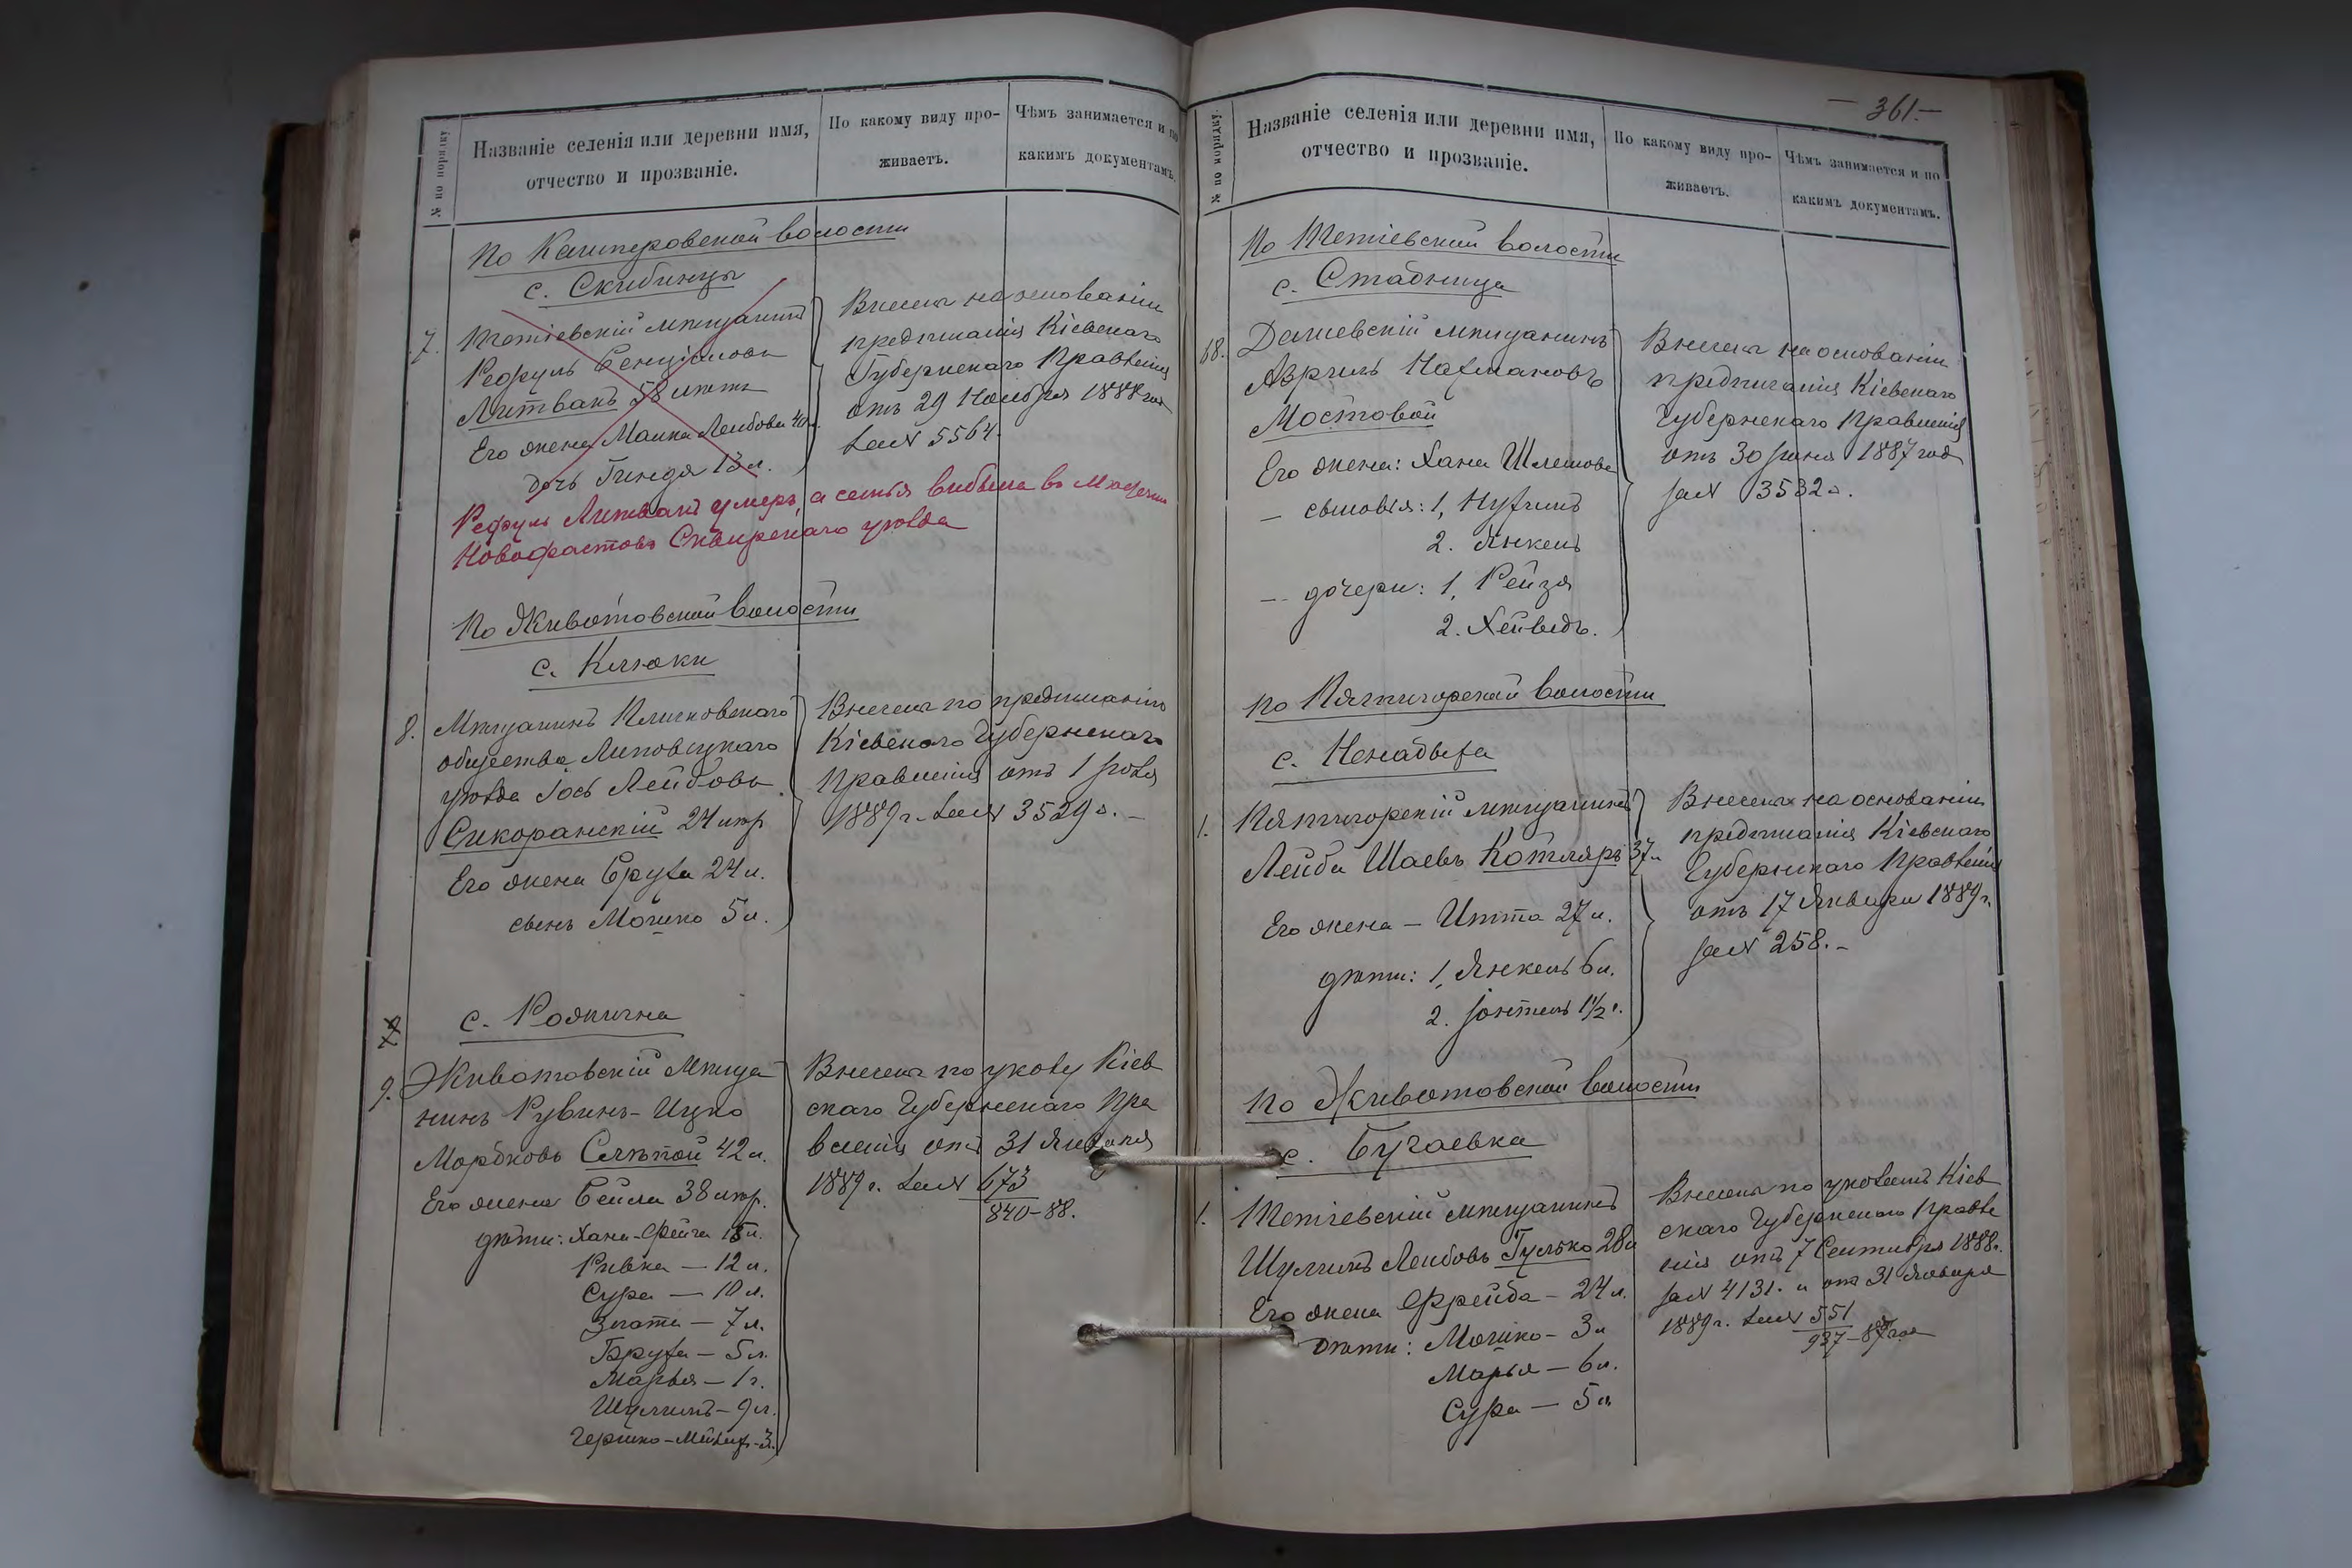 № по порядку
Названіе селенія или деревни имя,
отчество и прозваніе.
По какому виду про-
живаетъ.
Чѣмъ занимается и по
какимъ документамъ.
По Кашперовской волости
с. Скибинцы
7. Тетіевскій мѣщанинъ
Рефуль
Литвакъ 58 лѣтъ
Его жена Маика Лейбова 40 л.
дочь Гинда 13 л.
Внесенъ на основаніи
предписанія Кіевскаго
Губернскаго Правленія
отъ 29 Ноября 1888 года
за № 5564.
Рефуль Литвакъ умеръ, а семья выбыла въ
Новофастовъ Сквирскаго уѣзда
По Животовской волости
с. Клюки
8. Мѣщанинъ
общества Липовецкаго
уѣзда Іось Лейбовъ
Сикоранскій 24 лѣтъ
Его жена Бруха 24 л.
сынъ Мошко 5 л.
Внесенъ по предписанію
Кіевскаго Губернскаго
Правленія отъ 1 Іюля
1889 г. за № 3529. –
с. Рожична
9. Животовскій Мѣща
нинъ Рувинъ-Ицко
Мордковъ Слѣпой 42 л.
Его жена Бейла 38 лѣтъ.
дѣти: Хана-Фейга 15 л.
Ривка – 12 л.
Сура – 10 л.
Злота – 7 л.
Бруха – 5 л.
Марья – 1 г.
Шулимъ – 9 л.
Гершко-
Внесенъ по указу Кіев
скаго Губернскаго Пра
вленія отъ 31 Января
1889 г. за № 673
840–88.
– 361. –
№ по порядку
Названіе селенія или деревни имя,
отчество и прозваніе.
По какому виду про-
живаетъ.
Чѣмъ занимается и по
какимъ документамъ.
По Тетіевской волости
с. Стадница
68. Дашевскій мѣщанинъ
Азриль Нахмановъ
Мостовой
Его жена: Хана Шлемова
– сыновья: 1, Нухимъ
2. Янкель
– дочери: 1, Рейзя
2. Хейведъ.
Внесенъ на основаніи
предписанія Кіевскаго
Губернскаго Правленія
отъ 30 Іюня 1887 года
за № 3532.
По Пятигорской волости
с. Ненадыха
1. Пятигорскій мѣщанинъ
Лейба Шаевъ Котляръ 37 л.
Его жена – Итта 27 л.
дѣти: 1, Янкель 6 л.
2. Іонтель 1½ г.
Внесенъ на основаніи
предписанія Кіевскаго
Губернскаго Правленія
отъ 17 Января 1889 г.
за № 258. –
По Животовской волости
с. Бугаевка
1. Тетіевскій мѣщанинъ
Шулимъ Лейбовъ Гулько 28 л
Его жена Фрейда – 24 л.
Дѣти: Мошко – 3 л
Марья – 6 л.
Сура – 5 л
Внесенъ по указамъ Кіев
скаго Губернскаго Правле
нія отъ 7 Сентября 1888 г.
за № 4131. и отъ 31 Января
1889 г. за № 551
937–87 года